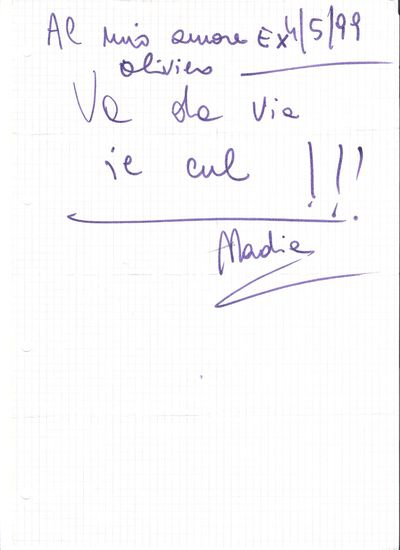 Al mio amore Ex 4/5/99
oliviero
Va da via
ie cul !!!
Nadia